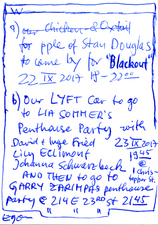 a) our Chicken & Oxtail
for pple of Stan Douglas
to come by for "Blackout"
22 IX 2017 18-22 00
b) Our LYFT Car to go
to LIA SOMMER'S
Penthouse Party with
David & Inge Fried 23 IX 2017
Lily Eclimont 19 45
Johanna Schwarzbeck @ 1 Chris-
AND THEN to go to topher St.
GARRY ZARIMPAS penthouse
party @ 214 E 23rd St 21 45